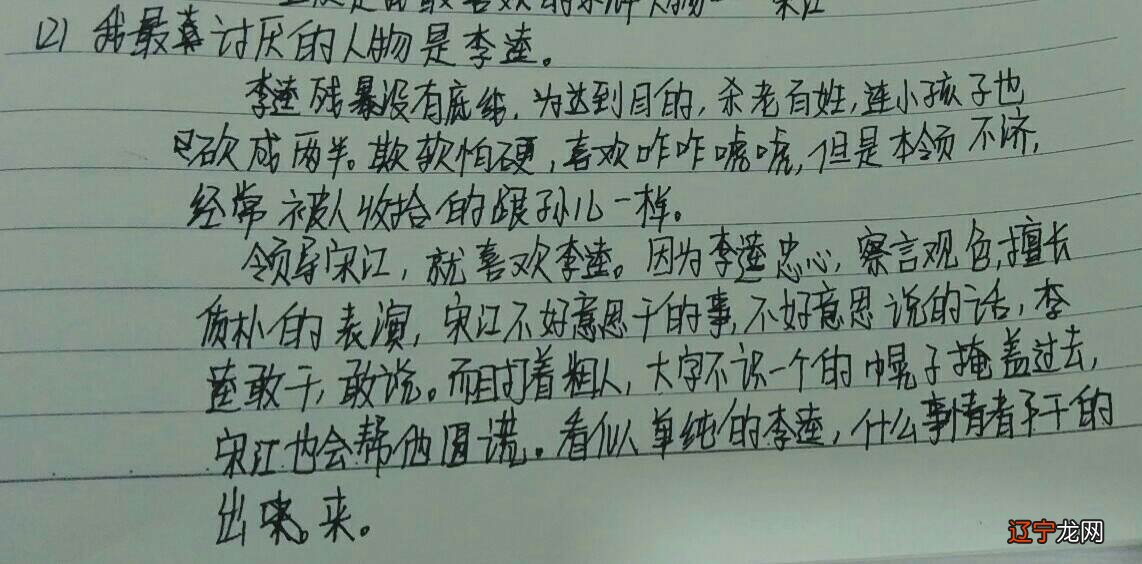 上次是我最喜欢的水浒人物—宋江
(2) 我最讨厌的人物是李逵。
李逵残暴没有底线,为达到目的,杀老百姓,连小孩子也
砍成两半。欺软怕硬,喜欢咋咋唬唬,但是本领不济,
经常被人收拾的跟孙儿一样。
领导宋江,就喜欢李逵。因为李逵忠心,察言观色,擅长
质朴的表演,宋江不好意思干的事,不好意思说的话,李
逵敢干,敢说。而且打着粗人,大字不识一个的幌子掩盖过去,
宋江也会帮他圆谎。看似单纯的李逵,什么事情都干的
出来。
辽宁龙网